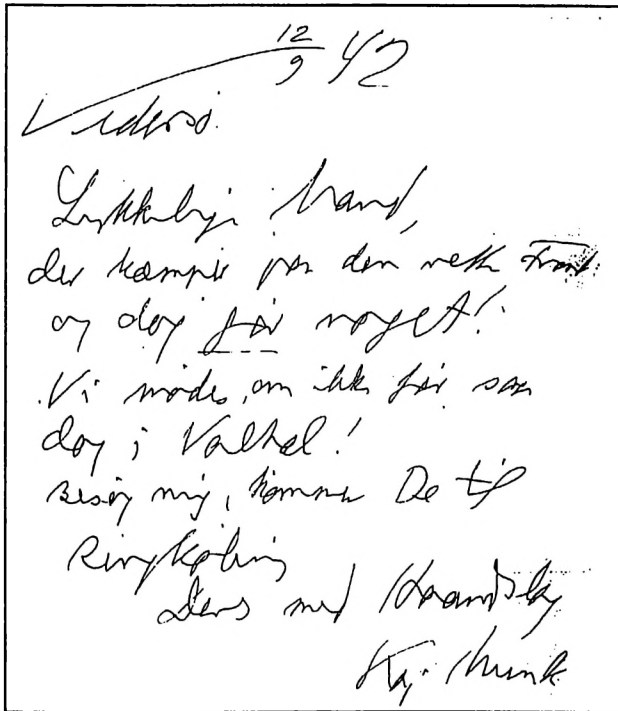 12/9 42
Vedersø.
Lykkelige Mand,
der kæmper paa den rette Front
og dog før noget!
Vi mødes, om ikke før saa
dog i Valhal!
Besøg mig, kommer De til
Ringkøbing
Deres med Haandslag
Kaj Munk